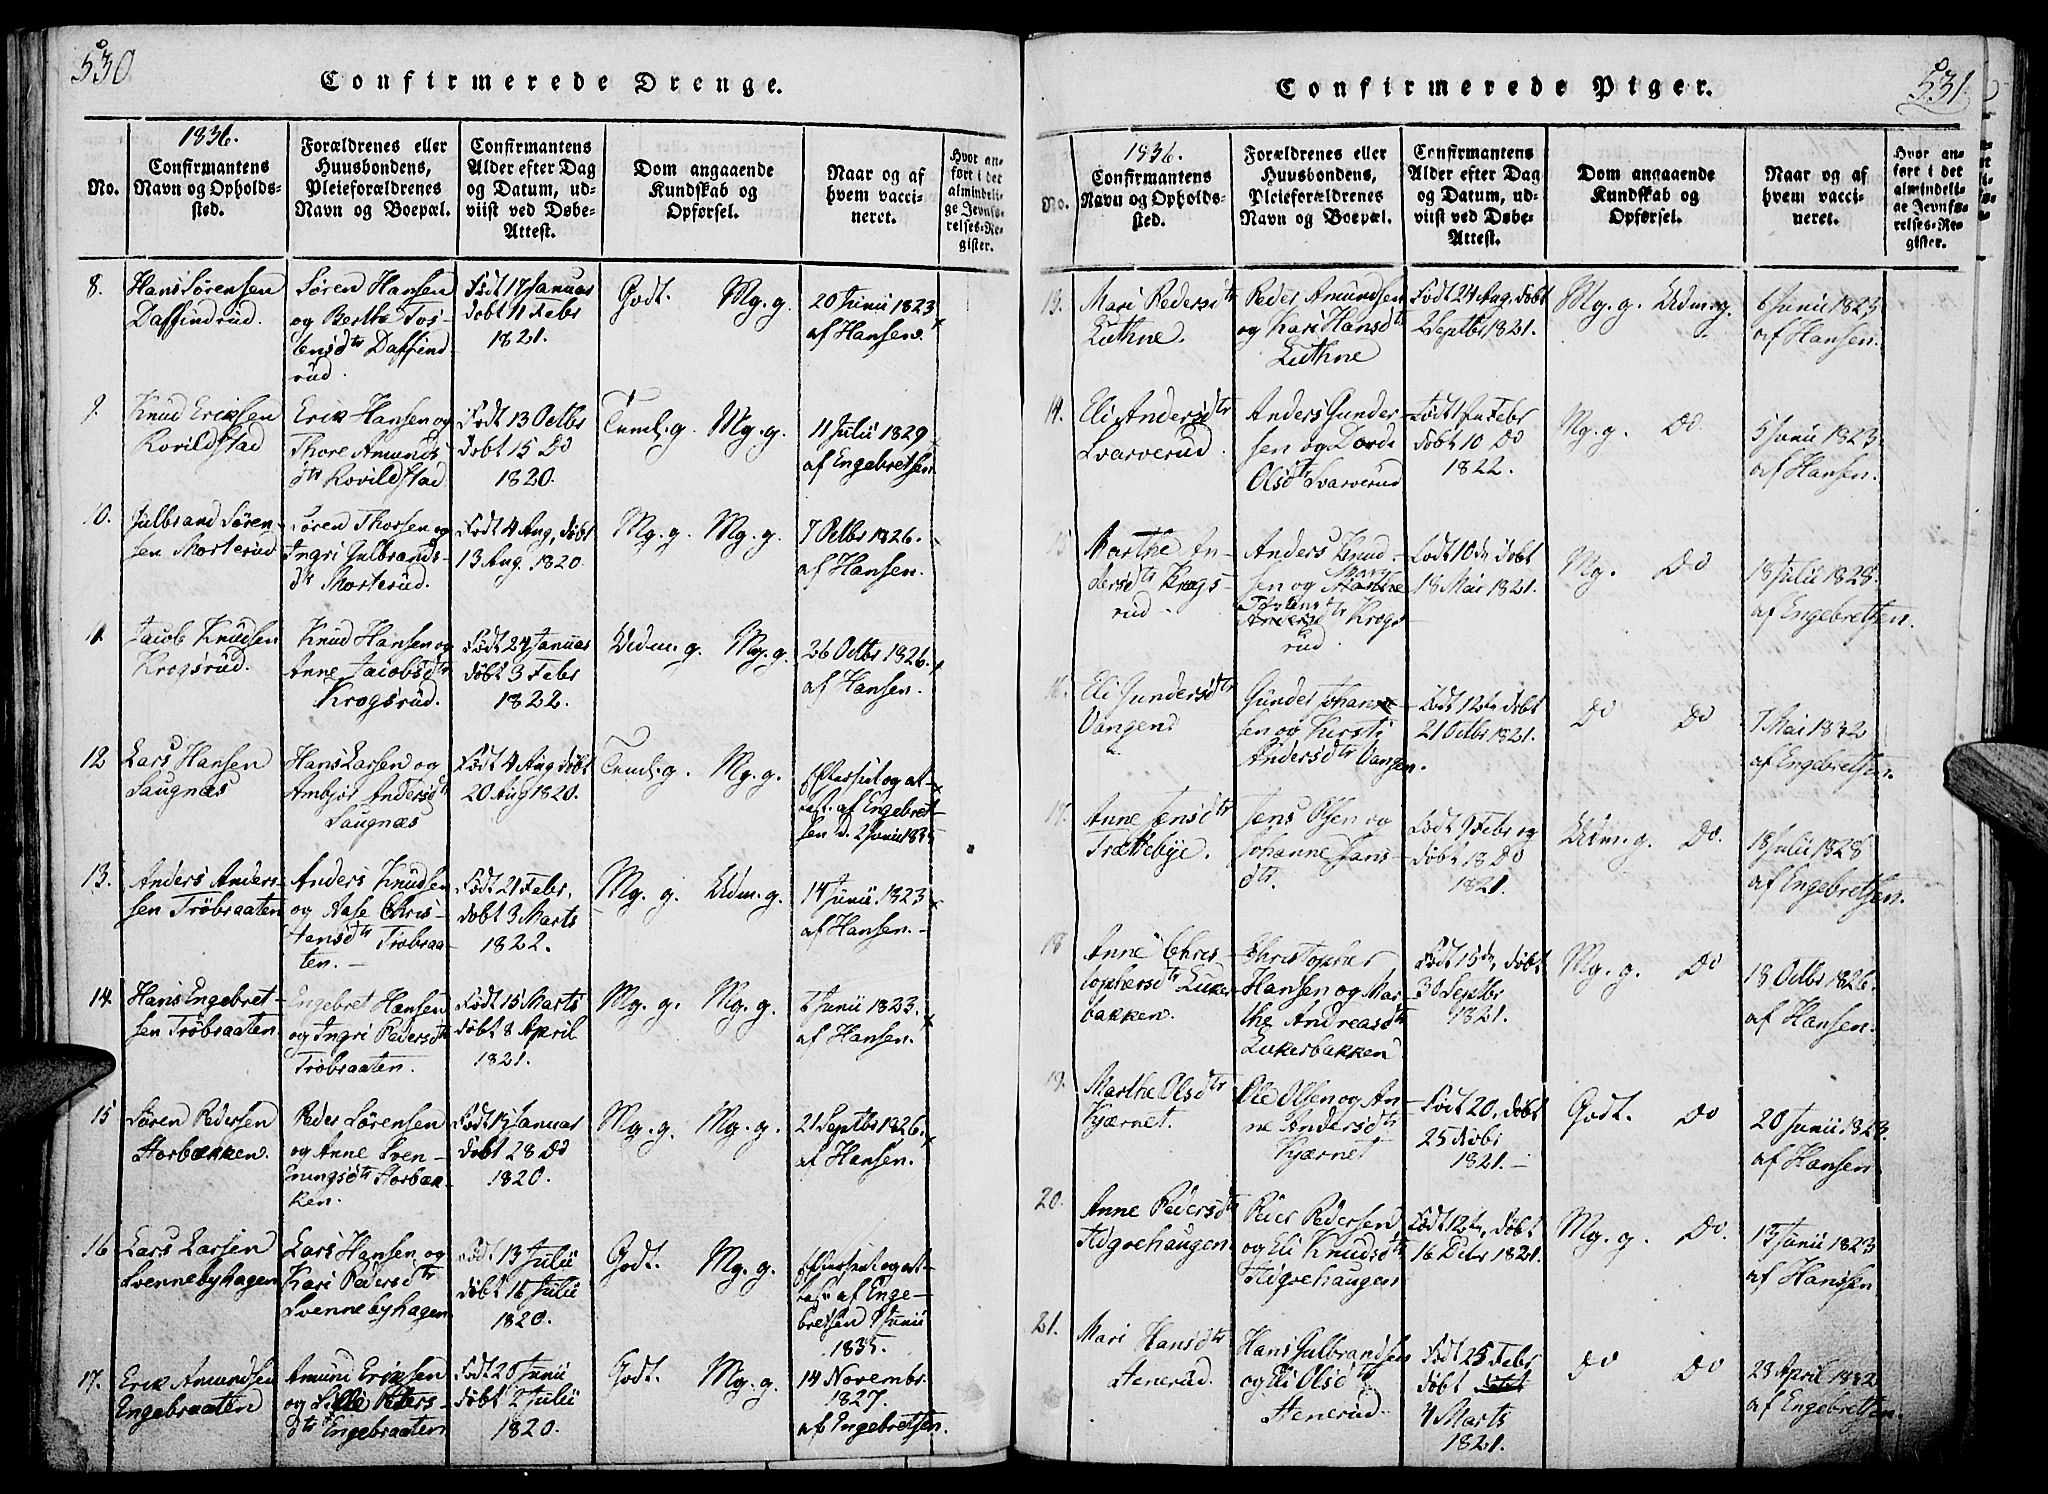 530
Confirmerede Drenge.
1836.
No.
Confirmantens
Navn og Opholds-
sted.
Forældrenes eller
Huusbondens,
Pleieforældrenes
Navn og Boepæl.
Confirmantens
Alder efter Dag
og Datum, ud-
viist ved Døbe-
Attest.
Dom angaaende
Kundskab og
Opførsel.
Naar og af
hvem vacci-
neret.
Hvor an-
ført i det
almindeli-
ge Jevnfø-
relses-Re-
gister.
8.
Hans Sørensen
Daffindrud.
Søren Hansen
og Berthe Tos-
tensdtr Daffind-
rud.
Født 17 Januar
døbt 11 Febr
1821.
Godt.
Mg. g.
20 Junii 1823
af Hansen.
9.
Knud Eriksen
Rovildstad
Erik Hansen og
Thore Amunds
dtr Rovildstad
Født 13 Octbr
døbt 15 Do
1820.
Teml. g.
Mg. g.
11 Julii 1829
af Engebretsen
10.
Gulbrand Søren-
sen Morterud
Søren Thorsen og
Ingri Gulbrands-
dtr Morterud.
Født 4 Aug, døbt
13 Aug. 1820
Mg. g.
Mg. g.
7 Octbr 1826.
af Hansen.
11.
Jacob Knudsen
Krogsrud.
Knud Hansen og
Anne Jacobsdtr
Krogsrud.
Født 24 Januar
døbt 3 Febr
1822.
Udm. g.
Mg. g.
26 Octbr 1826.
af Hansen.
12
Lars Hansen
Saugnæs
Hans Larsen og
Ambjør Andersdtr
Saugnæs
Født 4 Aug døbt
20 Aug 1820.
Teml. g.
Mg. g.
Efterseet og at-
test. af Engebret-
sen d. 2 Junii 1835
13.
Anders Anders-
sen Trøbraaten
Anders Knudsen
og Aase Chris-
tensdtr Trøbraa-
ten.
Født 21 Febr,
døbt 3 Marts
1822.
Mg. g.
Udm. g.
14 Junii 1823
af Hansen.
14.
Hans Engebret-
sen Trøbraaten
Engebret Hansen
og Ingri Pedersdtr
Trøbraaten.
Født 15 Marts
døbt 8 April
1821.
Mg. g.
Mg. g.
6 Junii 1823.
af Hansen.
15
Søren Pedersen
Storbakken.
Peder Sørensen
og Anne Sven-
Enungsdtr Storbak-
ken.
Født 15 Januar
døbt 28 Do
1820.
Mg. g.
Mg. g.
21 Septbr 1826.
af Hansen.
16
Lars Larsen
Svennebyhagen
Lars Hansen og
Kari Pedersdtr
Svennebyhagen
Født 13 Julii
døbt 16 Julii
1820.
Godt.
Mg. g.
Efterseet og at-
test. af Enge-
bretsen 9 Junii
1835.
17.
Erik Amundsen
Engebraaten
Amund Eriksen
og Peders-
dtr Engebraaten
Født 20 Junii
døbt 2 Julii
1820.
Godt.
Mg. g.
14 Novembr.
1827.
af Engebretsen.
531.
Confirmerede Piger.
1836.
No.
Confirmantens
Navn og Opholds-
sted.
Forældrenes eller
Huusbondens,
Pleieforældrenes
Navn og Boepæl.
Confirmantens
Alder efter Dag
og Datum, ud-
viist ved Døbe-
Attest.
Dom angaaende
Kundskab og
Opførsel.
Naar og af
hvem vacci-
neret.
Hvor an-
ført i det
almindeli-
ge Jevnfø-
relses-Re-
gister.
13.
Mari Pedersdtr
Luthne.
Peder Amundsen
og Kari Hansdtr
Luthne
Født 24 Aug. døbt
2 Septbr 1821.
Mg. g.
Udm. g.
6 Junii 1823
af Hansen.
14.
Eli Andersdtr
Svarverud
Anders Gunder-
sen og Dordi
Olsdtr Svarverud
Født Febr
døbt 10 Do
1822.
Mg. g.
Do
5 Junii 1823
af Hansen.
15
Marthe An-
dersdtr Krogs-
rud
Anders Knud-
sen og Marthe
Krogs
rud
Født 10de døbt
18 Mai 1821.
Mg.
Do
18 Julii 1828.
af Engebretsen.
16.
Eli Gundersdtr
Vangen.
Gunder Johan-
sen og Kirsti
Andersdtr Vangen.
Født 12te døbt
21 Octbr 1821.
Do
Do
7 Mai 1832
af Engebretsen.
17.
Anne Jensdtr
Trættebye.
Jens Olsen og
Johanne Jans
dtr.
Født 9 Febr og
døbt 18 Do
1821.
Udm. g.
Do.
18 Julii 1828
af Engebretsen.
18
Anne Chris-
tophersdtr Luker-
bakken.
Christopher
Hansen og Mar-
the Andreasdtr
Lukerbakken
Født 15de, døbt
30 Septbr
1821.
Mg. g.
Do
18 Octbr 1826.
af Hansen.
19.
Marthe Olsdtr
Kjærnet.
Ole Olsen og An-
ne Andersdtr
Kjærnet
Født 20, døbt
25 Novbr
1821.
Godt.
Do
20 Junii 1823.
af Hansen
20.
Anne Pedersdtr
Stigvehaugen.
Peder Pedersen
og Eli Knudsdtr
Stigvehaugen
Født 12te, døbt
16 Decbr 1821.
Mg. g.
Do.
13 Junii 1823
af Hansen
21.
Mari Hansdtr
Stenerud.
Hans Gulbrandsen
og Eli Olsdtr
Stenerud.
Født 25 Febr
døbt
4 Marts
1821.
Do
Do
23 April 1832
af Engebretsen.